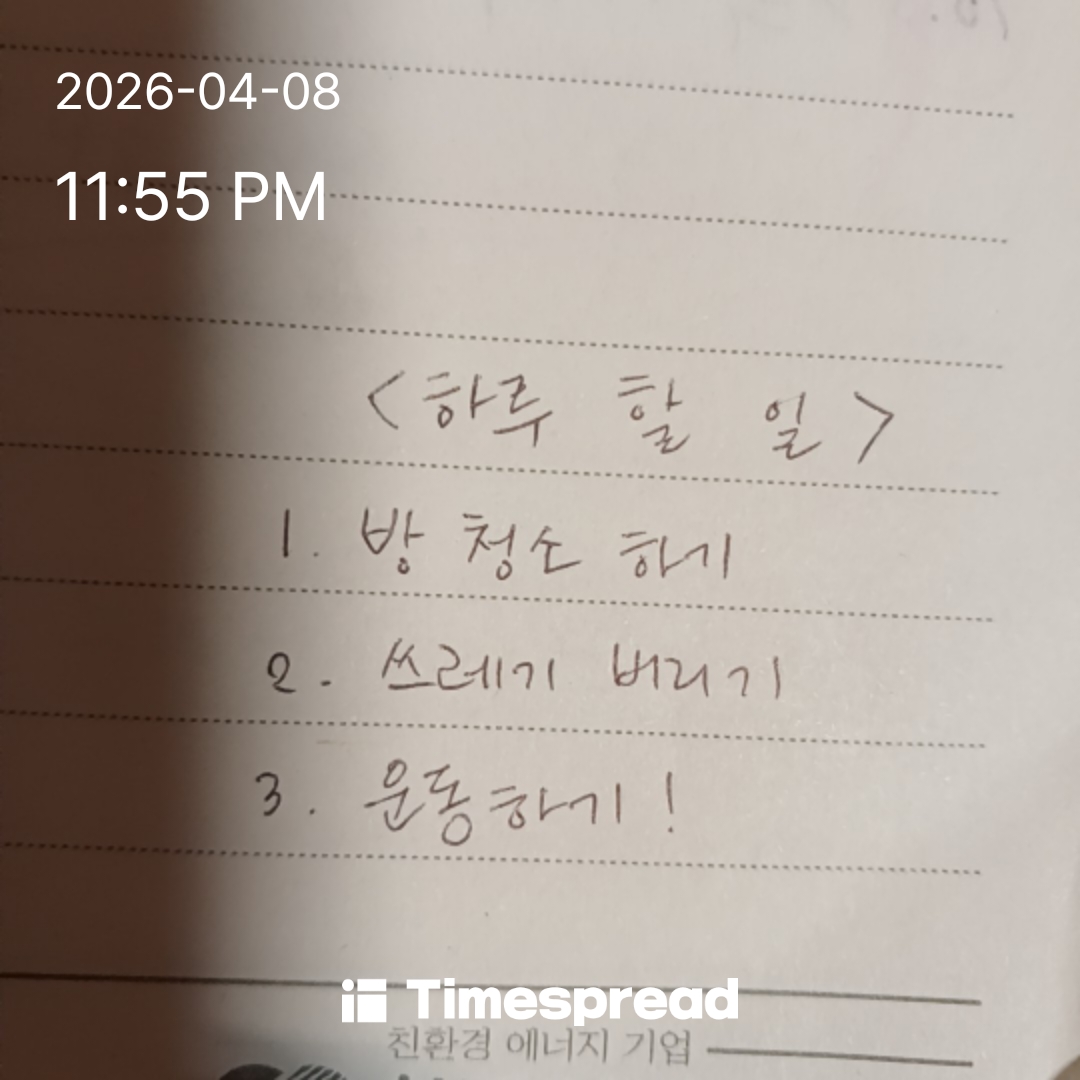 2026-04-08
11:55 PM
<하루 할 일>
1. 방 청소 하기
2. 쓰레기 버리기
3. 운동하기!
Timespread
친환경 에너지 기업